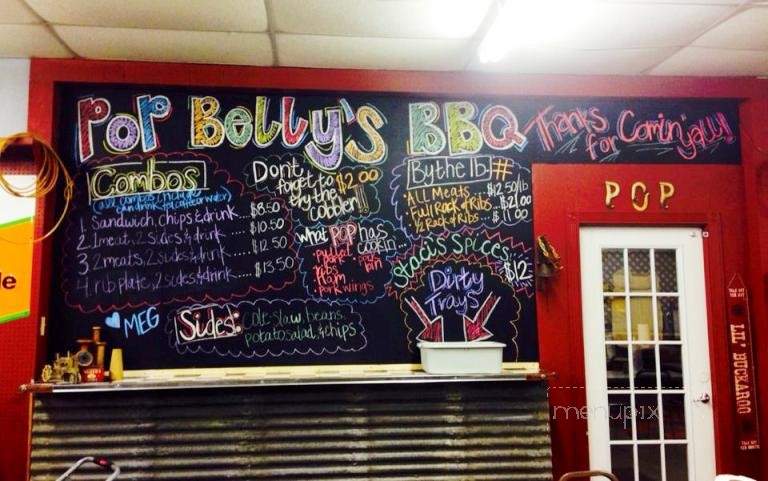 POP BELLY'S BBQ
Thanks
for Comin'
yall!
Combos
(all combos include
1. Sandwich, chips & drink.... $8.50
2. 1 meat, 2 sides & drink.... $10.50
3. 2 meats, 2 sides & drink.... $12.50
4. rib plate, 2 sides & drink.... $13.50
Don't
forget to
try the
cobbler!!
$2.00
By the lb #
ALL Meats... $12.50/lb
Full Rack of Ribs $21.00
½ Rack of Ribs... $11.00
what POP has
cookin...
• pulled pork
• ribs
• ham
• pork wings
Staci's Spices
$12
Dirty
Trays
♥ MEG
Sides:
Cole slaw, beans,
potato salad, & chips
POP
LIL' BUCKAROO
menupix